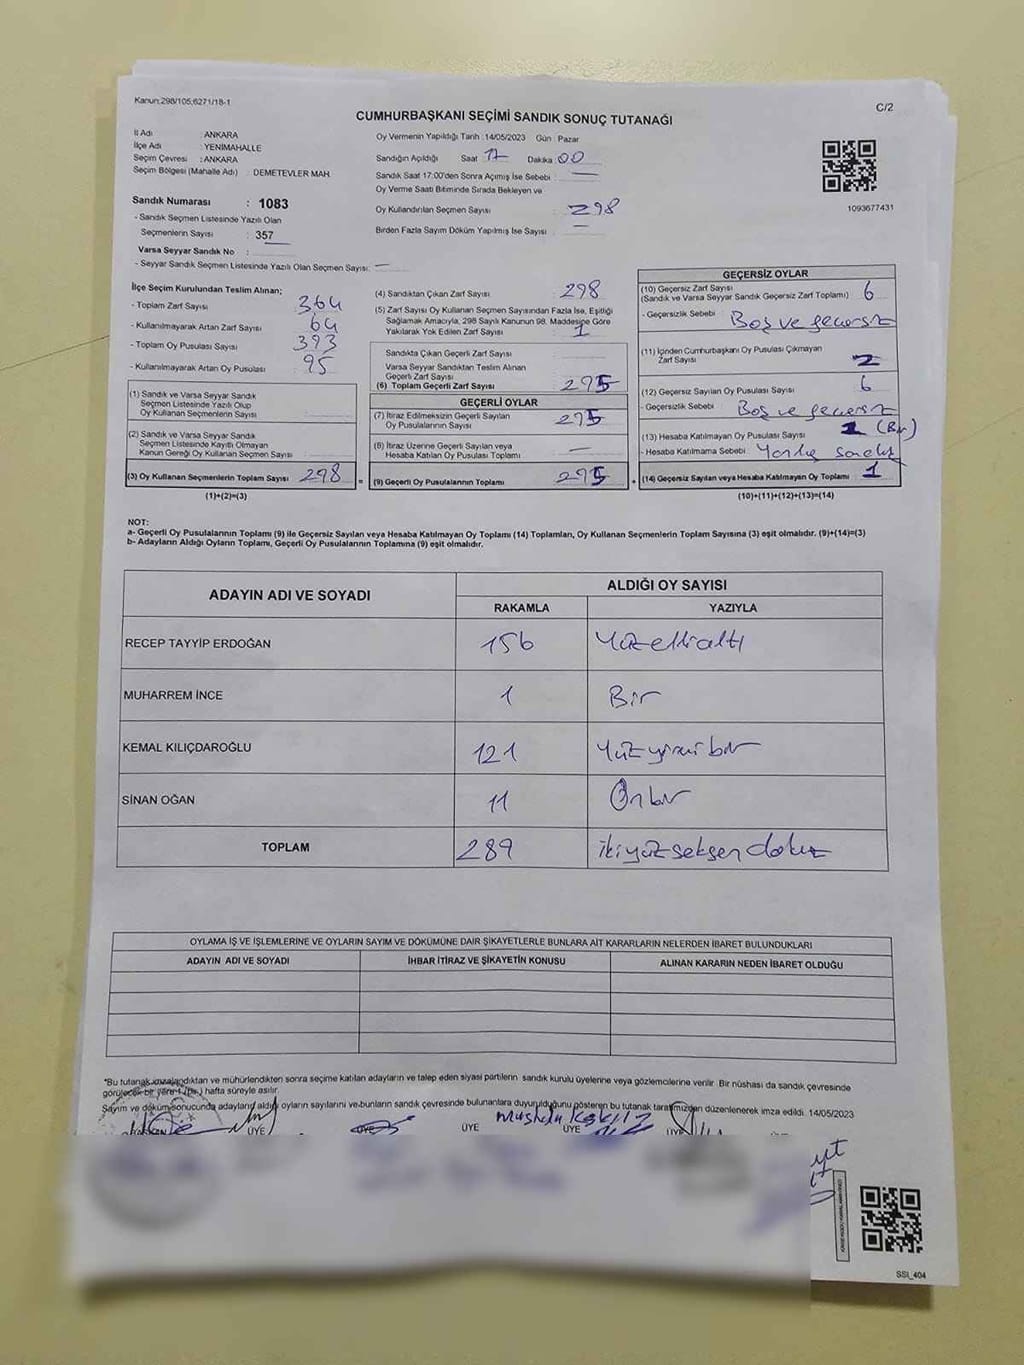 Kanun:298/105;6271/18-1
C/2
CUMHURBAŞKANI SEÇİMİ SANDIK SONUÇ TUTANAĞI
İl Adı : ANKARA
İlçe Adı : YENİMAHALLE
Seçim Çevresi : ANKARA
Seçim Bölgesi (Mahalle Adı) : DEMETEVLER MAH.
Sandık Numarası : 1083
- Sandık Seçmen Listesinde Yazılı Olan
Seçmenlerin Sayısı : 357
Varsa Seyyar Sandık No :
- Seyyar Sandık Seçmen Listesinde Yazılı Olan Seçmen Sayısı: —
Oy Vermenin Yapıldığı Tarih :14/05/2023 Gün : Pazar
Sandığın Açıldığı Saat 17 Dakika :00
Sandık Saat 17:00'den Sonra Açılmış İse Sebebi : —
Oy Verme Saati Bitiminde Sırada Bekleyen ve
Oy Kullandırılan Seçmen Sayısı : 298
Birden Fazla Sayım Döküm Yapılmış İse Sayısı : —
1093677431
İlçe Seçim Kurulundan Teslim Alınan;
- Toplam Zarf Sayısı 364
- Kullanılmayarak Artan Zarf Sayısı 64
- Toplam Oy Pusulası Sayısı 393
- Kullanılmayarak Artan Oy Pusulası 95
(1) Sandık ve Varsa Seyyar Sandık
Seçmen Listesinde Yazılı Olup
Oy Kullanan Seçmenlerin Sayısı
(2) Sandık ve Varsa Seyyar Sandık
Seçmen Listesinde Kayıtlı Olmayan
Kanun Gereği Oy Kullanan Seçmen Sayısı
(3) Oy Kullanan Seçmenlerin Toplam Sayısı 298 =
(1)+(2)=(3)
(4) Sandıktan Çıkan Zarf Sayısı 298
(5) Zarf Sayısı Oy Kullanan Seçmen Sayısından Fazla İse, Eşitliği
Sağlamak Amacıyla, 298 Sayılı Kanunun 98. Maddesine Göre
Yakılarak Yok Edilen Zarf Sayısı 1
Sandıkta Çıkan Geçerli Zarf Sayısı
Varsa Seyyar Sandıktan Teslim Alınan
Geçerli Zarf Sayısı
(6) Toplam Geçerli Zarf Sayısı 295
GEÇERLİ OYLAR
(7) İtiraz Edilmeksizin Geçerli Sayılan
Oy Pusulasının Sayısı 295
(8) İtiraz Üzerine Geçerli Sayılan veya
Hesaba Katılan Oy Pusulası Toplamı —
(9) Geçerli Oy Pusulalarının Toplamı 295 +
GEÇERSİZ OYLAR
(10) Geçersiz Zarf Sayısı
(Sandık ve Varsa Seyyar Sandık Geçersiz Zarf Toplamı) 6
- Geçersizlik Sebebi : Boş ve geçersiz
(11) İçinden Cumhurbaşkanı Oy Pusulası Çıkmayan
Zarf Sayısı 2
(12) Geçersiz Sayılan Oy Pusulası Sayısı 6
- Geçersizlik Sebebi : Boş ve geçersiz
(13) Hesaba Katılmayan Oy Pusulası Sayısı 1 (Bir)
- Hesaba Katılmama Sebebi : Yanlış sandık
(14) Geçersiz Sayılan veya Hesaba Katılmayan Oy Toplamı 1
(10)+(11)+(12)+(13)=(14)
NOT:
a- Geçerli Oy Pusulalarının Toplamı (9) ile Geçersiz Sayılan veya Hesaba Katılmayan Oy Toplamı (14) Toplamları, Oy Kullanan Seçmenlerin Toplam Sayısına (3) eşit olmalıdır. (9)+(14)=(3)
b- Adayların Aldığı Oyların Toplamı, Geçerli Oy Pusulalarının Toplamına (9) eşit olmalıdır.
ADAYIN ADI VE SOYADI ALDIĞI OY SAYISI
RAKAMLA YAZIYLA
RECEP TAYYİP ERDOĞAN 156 Yüzellialtı
MUHARREM İNCE 1 Bir
KEMAL KILIÇDAROĞLU 121 Yüzyirmibir
SİNAN OĞAN 11 Onbir
TOPLAM 289 ikiyüzseksendokuz
OYLAMA İŞ VE İŞLEMLERİNE VE OYLARIN SAYIM VE DÖKÜMÜNE DAİR ŞİKAYETLERLE BUNLARA AİT KARARLARIN NELERDEN İBARET BULUNDUKLARI
ADAYIN ADI VE SOYADI İHBAR İTİRAZ VE ŞİKAYETİN KONUSU ALINAN KARARIN NEDEN İBARET OLDUĞU
*Bu tutanak imzalandıktan ve mühürlendikten sonra seçime katılan adayların ve talep eden siyasi partilerin sandık kurulu üyelerine veya gözlemcilerine verilir. Bir nüshası da sandık çevresinde
görülecek bir yere 1 (bir) hafta süreyle asılır.
Sayım ve dökümü sonucunda adayların aldığı oyların sayılarını ve bunların sandık çevresinde bulunanlara duyurulduğunu gösteren bu tutanak tarafımızdan düzenlenerek imza edildi. 14/05/2023
BAŞKAN ÜYE ÜYE ÜYE ÜYE ÜYE ÜYE
SSI_404